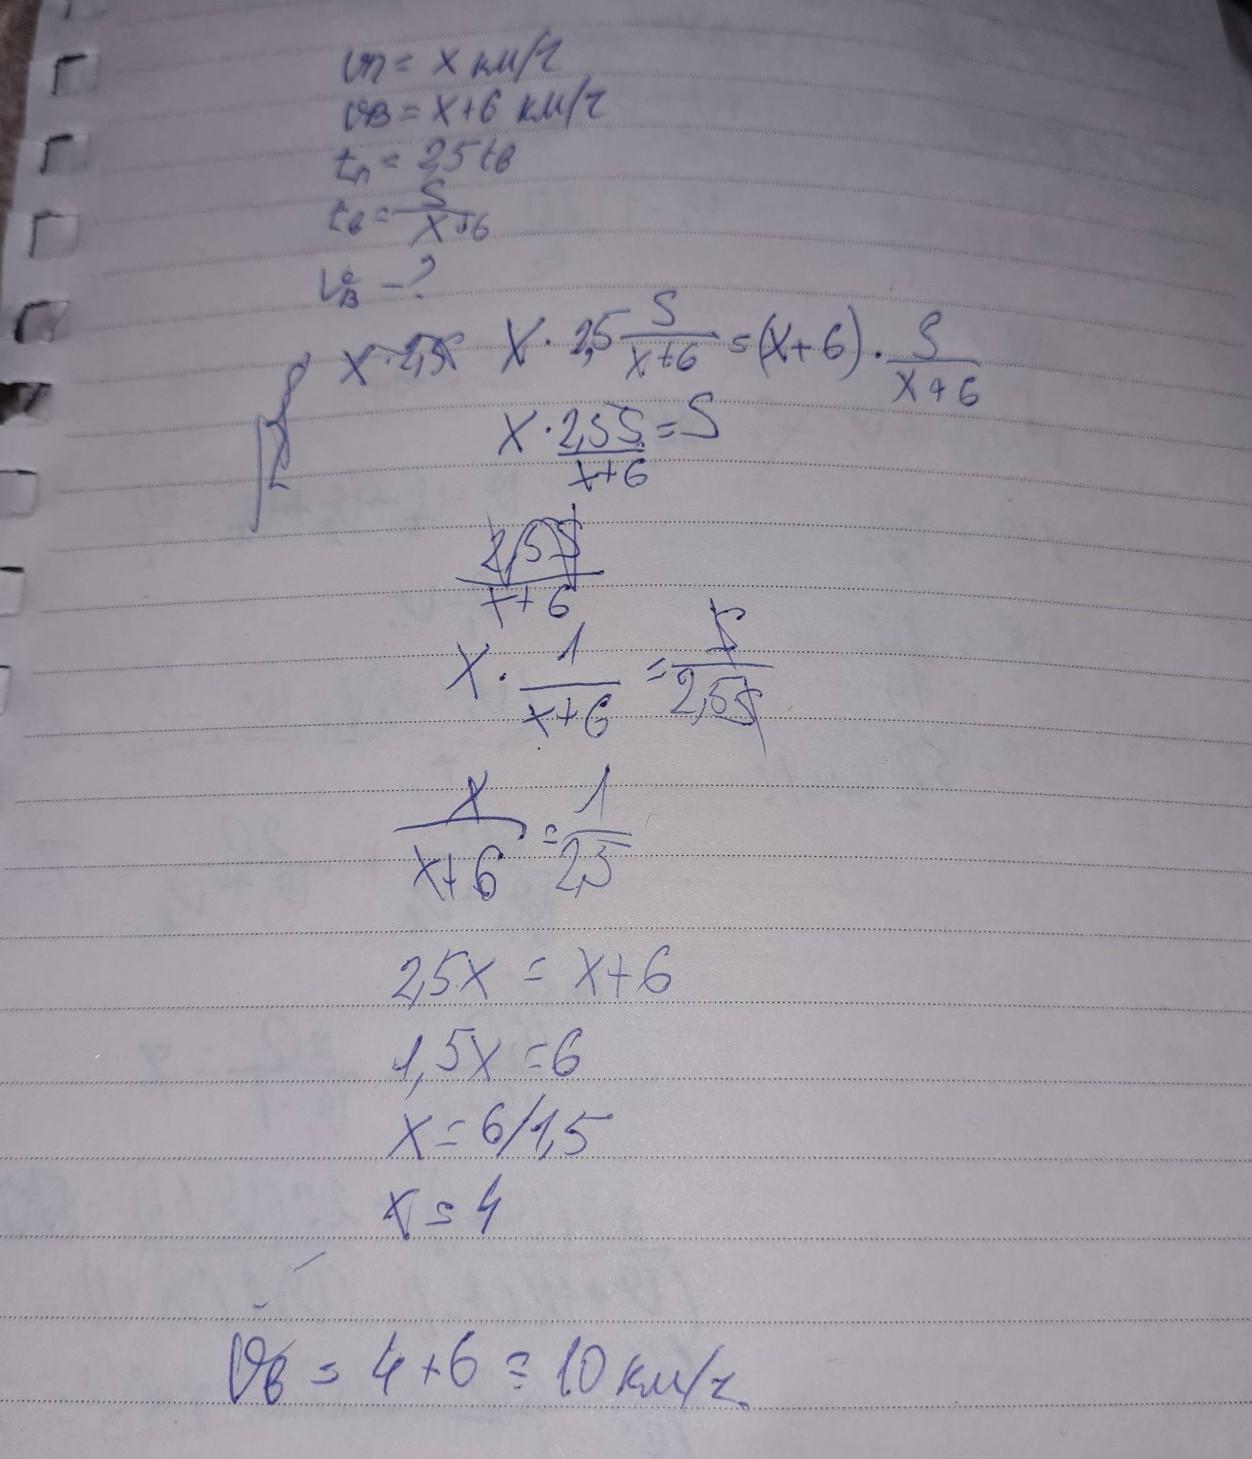 vп = x км/ч
vв = x+6 км/ч
tп = 2,5 tв
tв = S/(x+6)
vв - ?
x · 2,5 x · 2,5 S/(x+6) = (x+6) · S/(x+6)
x · 2,5S/(x+6) = S
2,5S/(x+6)
x · 1/(x+6) = S/2,5S
x/(x+6) = 1/2,5
2,5x = x+6
1,5x = 6
x = 6/1,5
x = 4
vв = 4+6 = 10 км/ч.